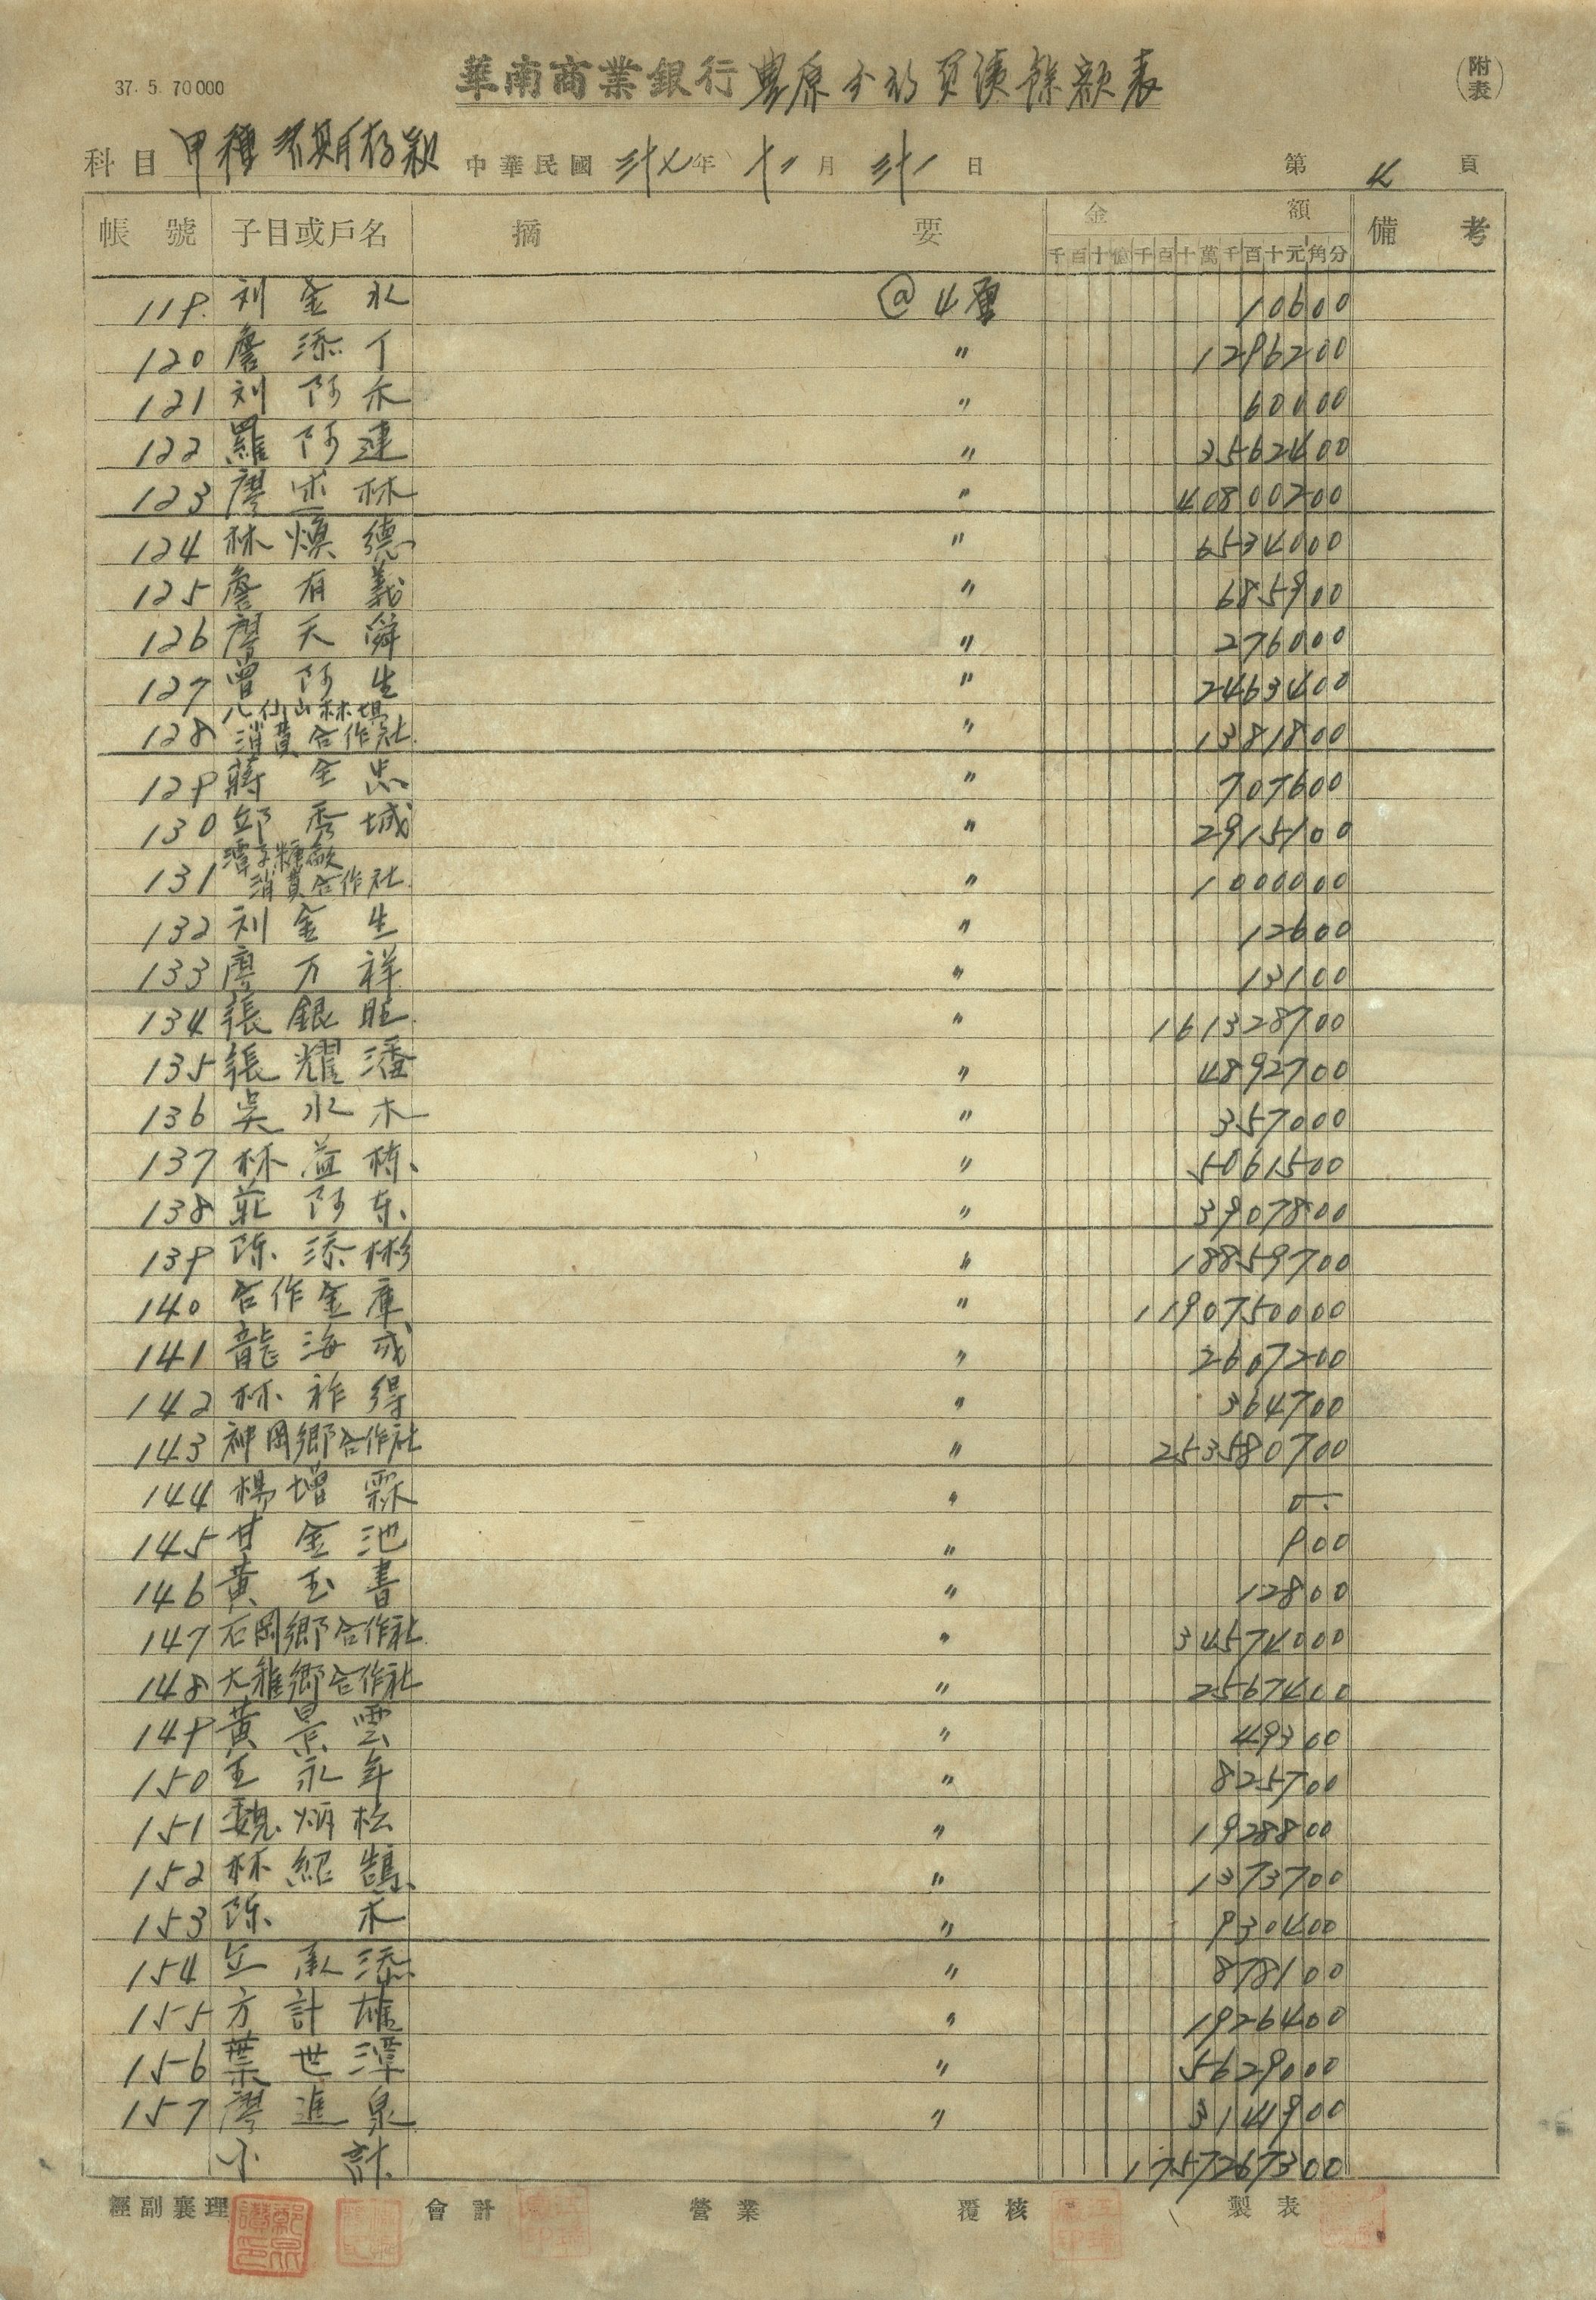 37. 5. 70000
華南商業銀行豐原分行負債餘額表
(附表)
科目 甲種活期存款 中華民國 三十七年 十二月 三十一日 第 4 頁
帳號 子目或戶名 摘要 金額 備考
千百十億千百十萬千百十元角分
119 刘金水 @4厘 10600
120 詹添丁 〃 1296200
121 刘阿禾 〃 60000
122 羅阿連 〃 3562400
123 廖述林 〃 40800200
124 林煥德 〃 6534000
125 詹有義 〃 685900
126 廖天舜 〃 276000
127 曾阿生 〃 2463400
八仙山林場
128 消費合作社 〃 1381800
129 蔣全忠 〃 707600
130 邱秀城 〃 2915100
潭子糖廠
131 消費合作社 〃 1000000
132 刘金生 〃 12600
133 廖万祥 〃 13100
134 張銀旺 〃 161328700
135 張耀潘 〃 4892700
136 吳水木 〃 357000
137 林益栋 〃 5061500
138 莊阿东 〃 3907800
139 陈添彬 〃 18859700
140 合作金庫 〃 1190750000
141 龍海成 〃 2607200
142 林祚得 〃 364700
143 神岡鄉合作社 〃 253580700
144 楊增霖 〃
145 甘金池 〃 900
146 黃玉書 〃 12800
147 石岡鄉合作社 〃 34574000
148 大雅鄉合作社 〃 2567400
149 黃景雲 〃 49300
150 王永年 〃 825700
151 魏炳松 〃 1928800
152 林紹鵠 〃 1373700
153 陈禾 〃 930400
154 丘承添 〃 878100
155 方計雄 〃 1926400
156 葉世潭 〃 5629000
157 廖進泉 〃 3141900
小計 1757267300
經副襄理 會計 營業 覆核 製表